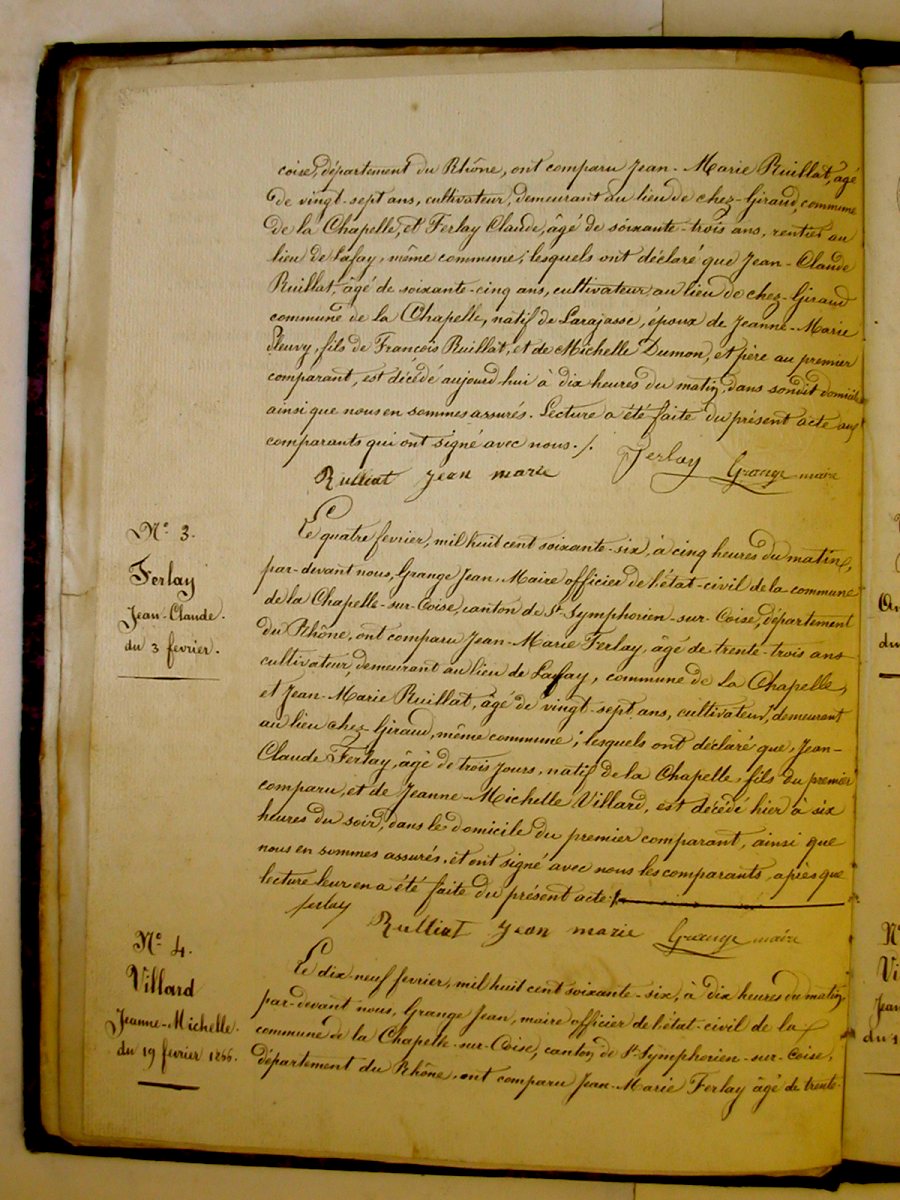 coise, département du Rhône, ont comparu Jean-Marie Ruillat, âgé
de vingt-sept ans, cultivateur, demeurant au lieu de chez-Giraud, commune
de la Chapelle, et Ferlay Claude, âgé de soixante-trois ans, rentier au
lieu de Lafay, même commune; lesquels ont déclaré que Jean-Claude
Ruillat, âgé de soixante-cinq ans, cultivateur au lieu de chez-Giraud
commune de la Chapelle, natif de Larajasse, époux de Jeanne-Marie
fleuvy, fils de François Ruillat, et de Michelle Dumon, et père au premier
comparant, est décédé aujourd'hui à dix heures du matin, dans sondit domicile
ainsi que nous en sommes assurés. Lecture a été faite du présent acte aux
comparants qui ont signé avec nous./.
Ferlay Grange maire
Rulliat Jean marie
N° 3.
Ferlay
Jean-Claude.
du 3 fevrier.
Le quatre fevrier, mil huit cent soixante-six, à cinq heures du matin,
par-devant nous, Grange Jean, Maire officier de l'état-civil de la commune
de la Chapelle-sur-Coise, canton de St Symphorien-sur-Coise, département
du Rhône, ont comparu Jean-Marie Ferlay, âgé de trente-trois ans
cultivateur, demeurant au lieu de Laffay, commune de La Chapelle,
et Jean-Marie Ruillat, âgé de vingt-sept ans, cultivateur, demeurant
au lieu chez Giraud, même commune; lesquels ont déclaré que, Jean-
Claude Ferlay, âgé de trois jours, natif de la Chapelle, fils du premier
comparu, et de Jeanne-Michelle Villard, est décédé hier à six
heures du soir, dans le domicile du premier comparant, ainsi que
nous en sommes assurés, et ont signé avec nous les comparants, après que
lecture leur en a été faite du présent acte./.
ferlay
Rulliat Jean marie Grange maire
N° 4.
Villard
Jeanne-Michelle.
du 19 fevrier 1866.
Le dix-neuf fevrier, mil huit cent soixante-six, à dix heures du matin,
par-devant nous, Grange Jean, maire officier de l'état-civil de la
commune de la Chapelle-sur-Coise, canton de St Symphorien-sur-Coise,
département du Rhône, ont comparu Jean-Marie Ferlay âgé de trente-